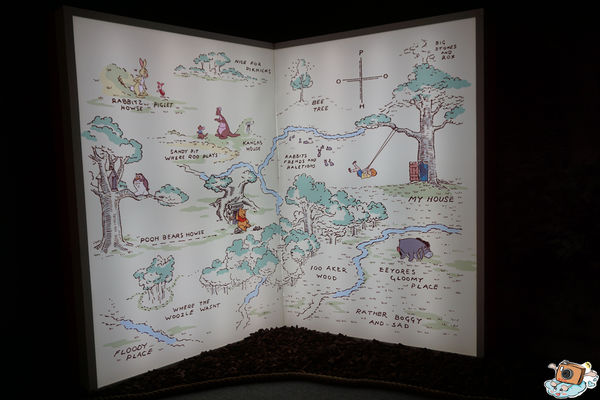 RABBITS HOWSE
PIGLET
NICE FOR
PIKNICKS
SANDY PIT
WHERE ROO PLAYS
KANGAS
HOUSE
POOH BEARS HOUSE
WHERE THE
WOOZLE WASNT
FLOODY
PLACE
P
O O
H
BEE
TREE
BIG
STONES
AND
ROX
RABBITS
FRENDS AND
RALETIONS
MY HOUSE
100 AKER
WOOD
EEYORES
GLOOMY
PLACE
RATHER BOGGY
AND SAD